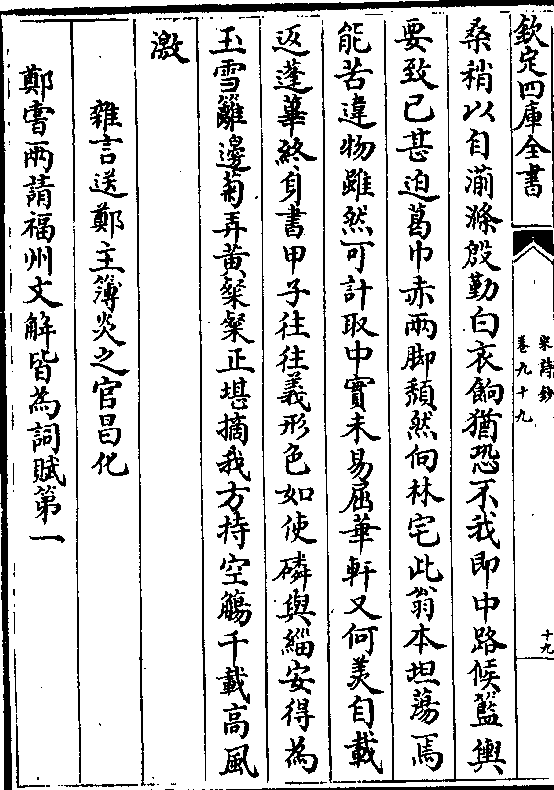 欽定四庫全書
宋詩鈔
卷九十九
十九
桑稍以自湔滌殷勤白衣餉猶恐不我即中路候籃輿
要致已甚迫葛巾赤兩脚頽然向林宅此翁本坦蕩焉
能苦違物雖然可計取中實未易屈華軒又何羙自載
返蓬蓽終身書甲子往往義形色如使磷與緇安得為
玉雪籬邊菊弄黄粲粲正堪摘我方持空觴千載髙風
激
雜言送鄭主簿炎之官昌化
鄭嘗兩請福州文解皆為詞賦第一